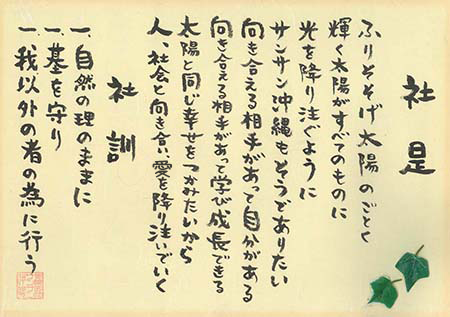 社是
ふりそそげ太陽のごとく
輝く太陽がすべてのものに
光を降り注ぐように
サンサン沖縄もそうでありたい
向き合える相手があって自分がある
向き合える相手があって学び成長できる
太陽と同じ幸せをつかみたいから
人、社会と向き合い愛を降り注いでいく
社訓
一、自然の理のままに
一、基を守り
一、我以外の者の為に行う